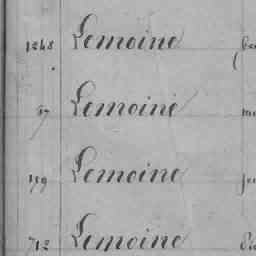 1248 Lemoine
57 Lemoine
159 Lemoine
712 Lemoine